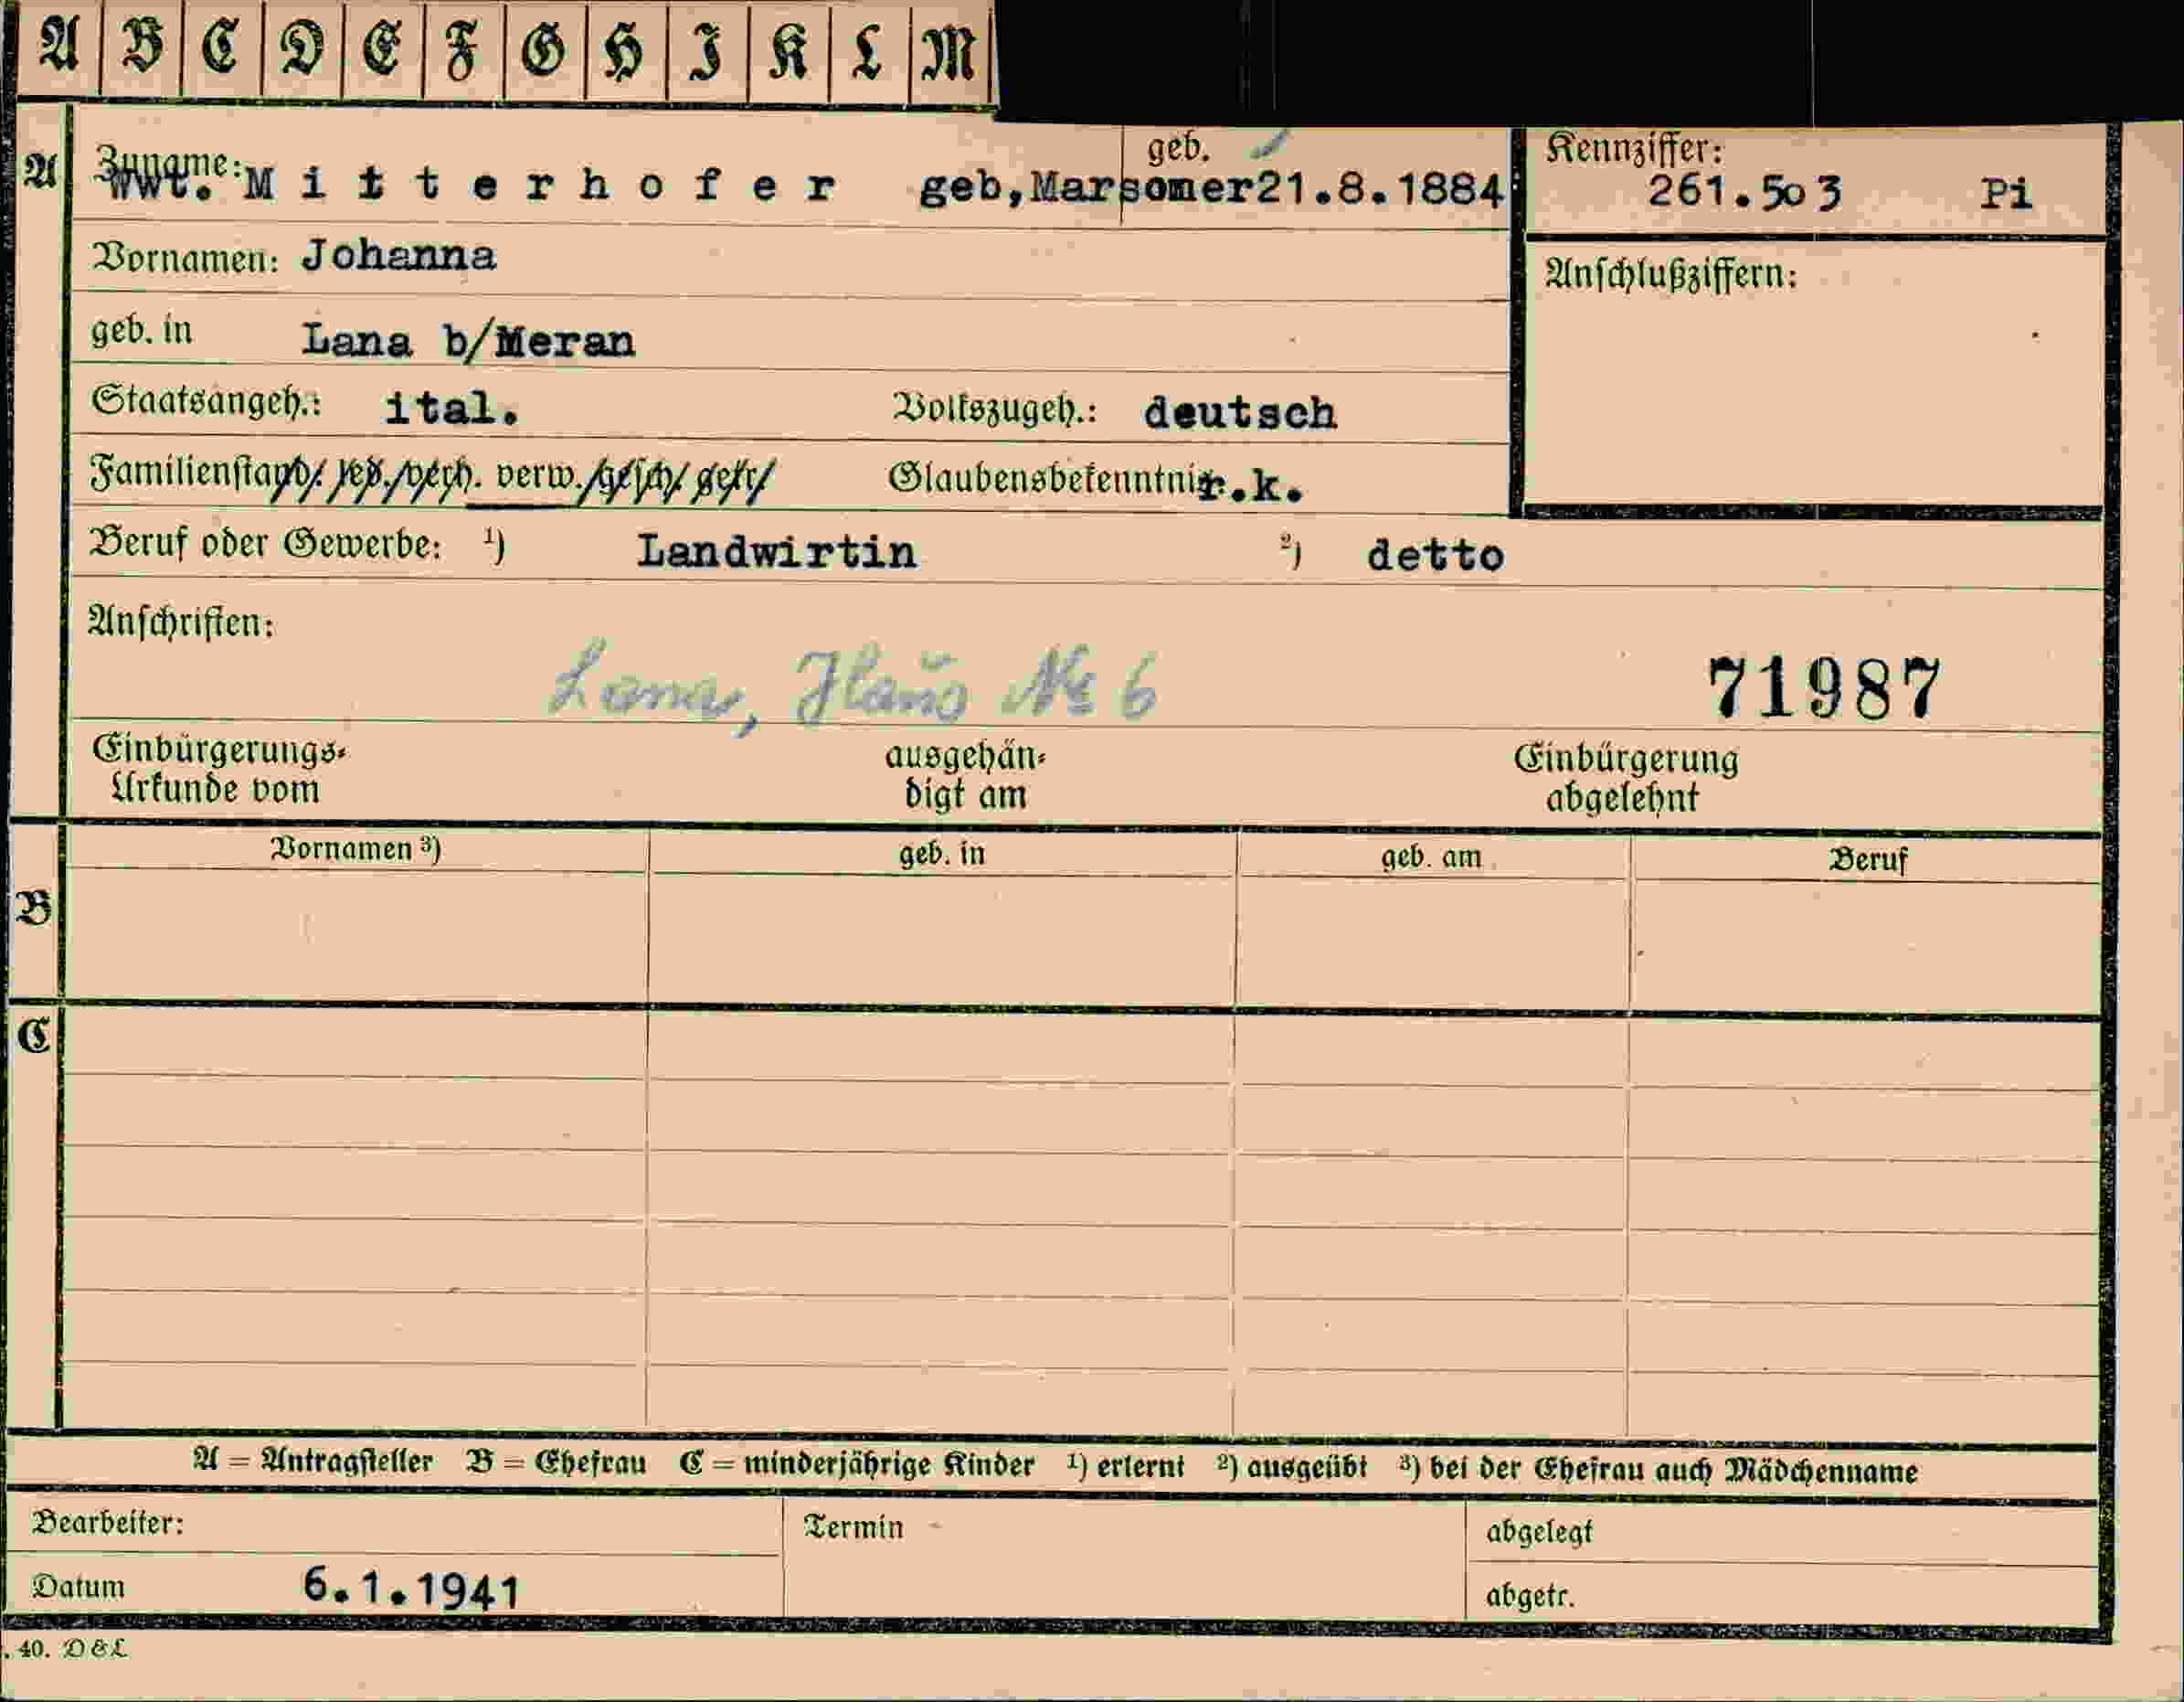 A B C D E F G H I K L M
A Zuname: Wwt. Mitterhofer geb,Marsoner geb. 21.8.1884 Kennziffer: 261.503 Pi
Vornamen: Johanna
Anschlußziffern:
geb. in Lana b/Meran
Staatsangeh.: ital. Volkszugeh.: deutsch
Familienstand: led./verh. verw./gesch/ getr/ Glaubensbekenntnis: r.k.
Beruf oder Gewerbe: ¹) Landwirtin ²) detto
Anschriften:
Lana, Haus № 6 71987
Einbürgerungs- ausgehän- Einbürgerung
Urkunde vom digt am abgelehnt
Vornamen ³) geb. in geb. am Beruf
B
C
A = Antragsteller B = Ehefrau C = minderjährige Kinder ¹) erlernt ²) ausgeübt ³) bei der Ehefrau auch Mädchenname
Bearbeiter: Termin abgelegt
Datum 6.1.1941 abgetr.
. 40. D & L